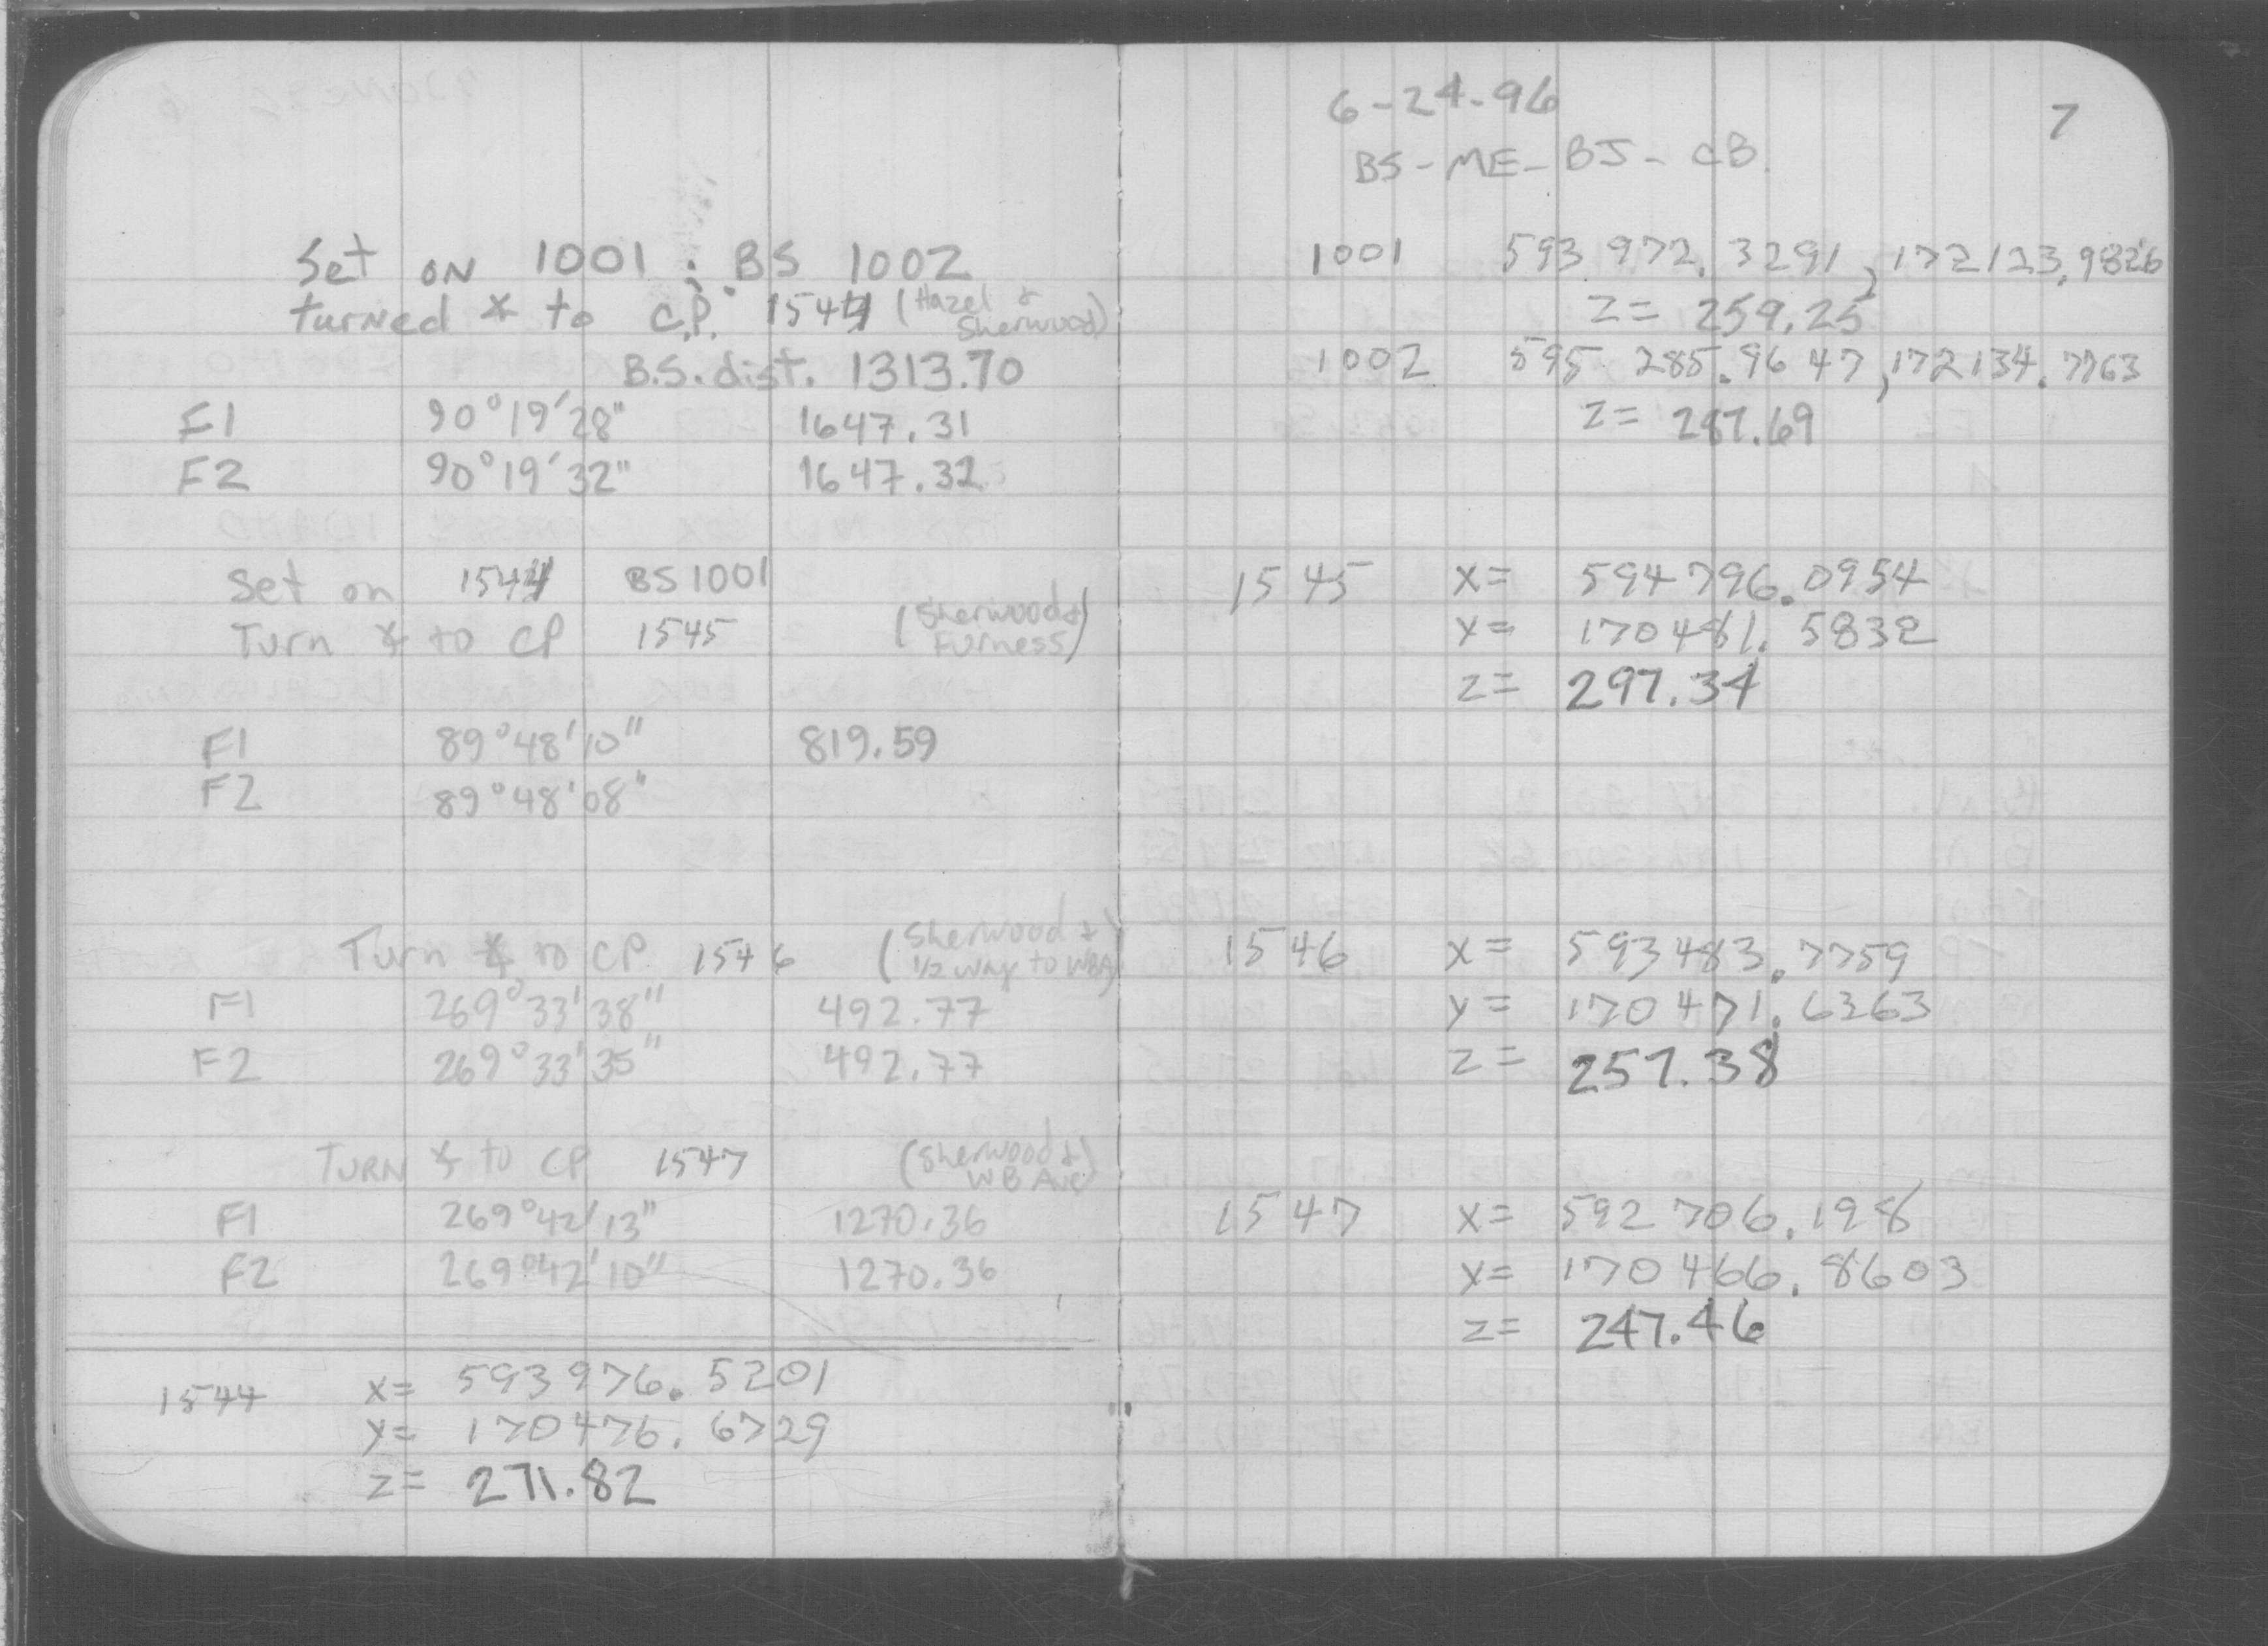 Set ON 1001 ; BS 1002
turned ∡ to C.P. 1544 (Hazel & Sherwood)
B.S. dist. 1313.70
F1 90°19'28" 1647.31
F2 90°19'32" 1647.32
Set on 1544 BS 1001
Turn ∡ to CP 1545 (Sherwood & Furness)
F1 89°48'10" 819.59
F2 89°48'08"
Turn ∡ to CP 1546 (Sherwood & 1/2 way to WBA)
F1 269°33'38" 492.77
F2 269°33'35" 492.77
TURN ∡ to CP 1547 (Sherwood & WB Ave)
F1 269°42'13" 1270.36
F2 269°42'10" 1270.36
1544 x= 593976.5201
y= 170476.6729
z= 271.82
6-24-96
7
BS-ME-BJ-CB.
1001 593 972.3291, 172123.9826
z= 259.25
1002 595 285.9647, 172134.7763
z= 287.69
1545 x= 594796.0954
y= 170481.5832
z= 297.34
1546 x= 593483.7759
y= 170471.6363
z= 257.38
1547 x= 592706.198
y= 170466.8603
z= 247.46